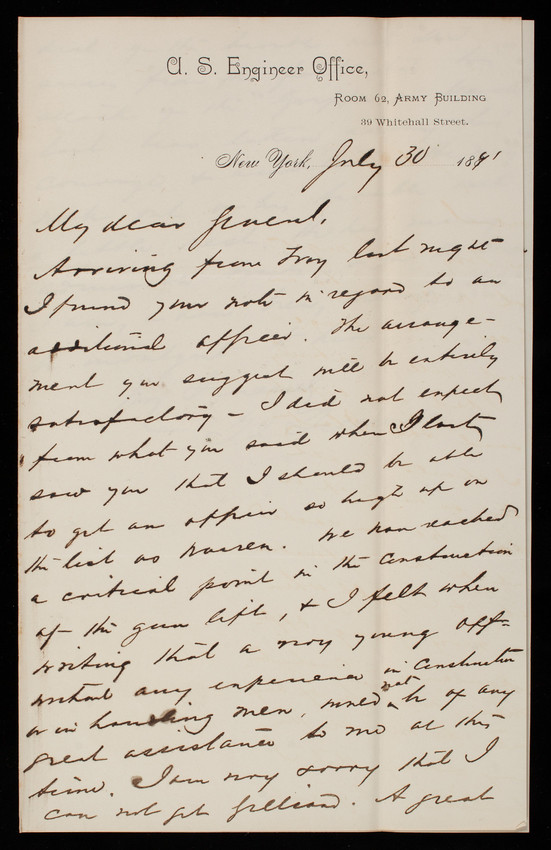 U. S. Engineer Office,
Room 62, Army Building
39 Whitehall Street.
New York, July 30 1891
My dear General,
Arriving from Troy last night
I found your note in regard to an
additional officer. The arrange-
ment you suggest will be entirely
satisfactory – I did not expect
from what you said when I last
saw you that I should be able
to get an officer so high up on
the list as Warren. We have reached
a critical point in the construction
of the gun lift, & I felt when
writing that a very young off-
without any experience in construction
or in handling men, would not be of any
great assistance to me at this
time. I am very sorry that I
can not get Gillard. A great